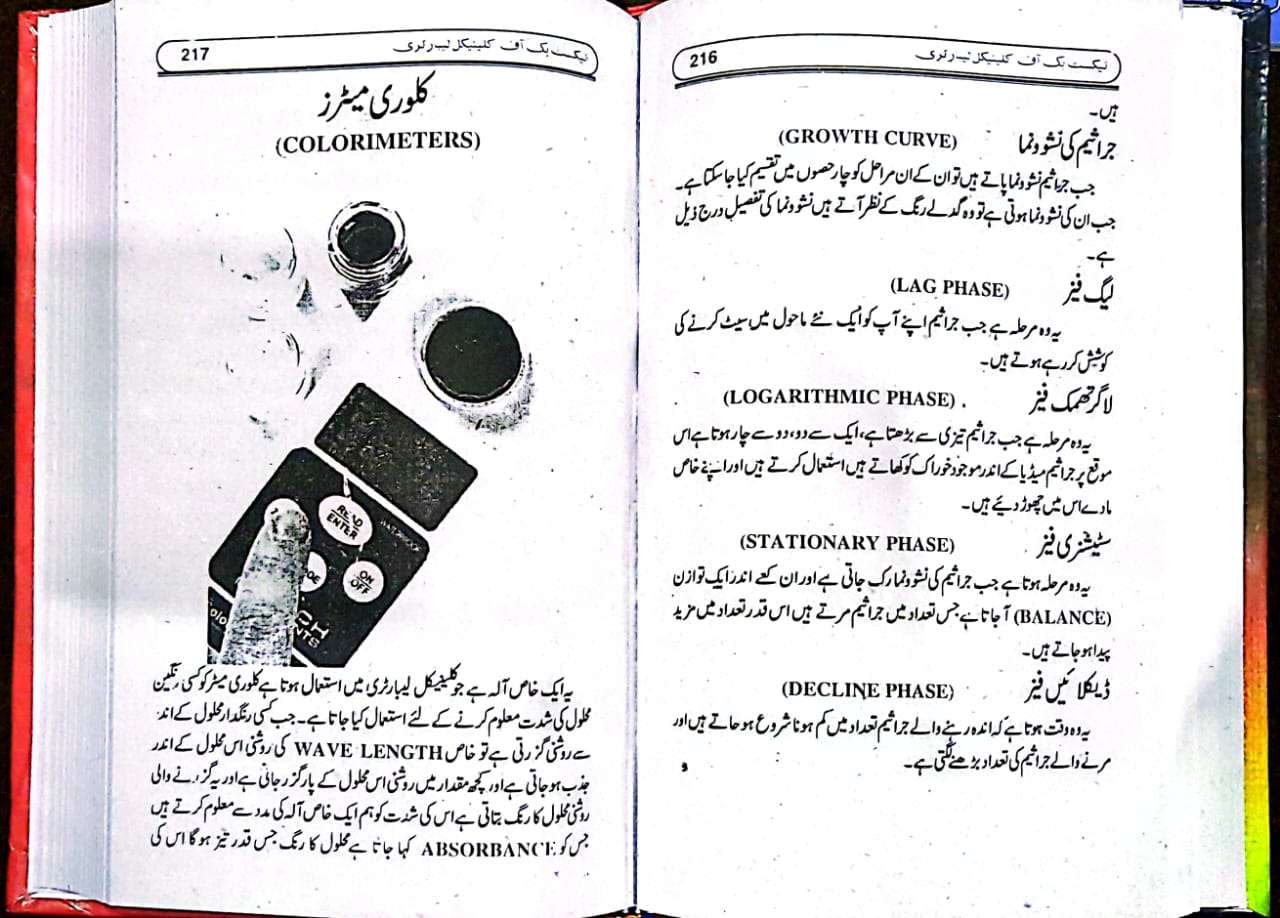 ٹیکسٹ بک آف کلینیکل لیبارٹری 216
ہیں۔
جراثیم کی نشوونما (GROWTH CURVE)
جب جراثیم نشوونما پاتے ہیں تو ان کے ان مراحل کو چار حصوں میں تقسیم کیا جاسکتا ہے۔
جب ان کی نشوونما ہوتی ہے تو وہ گدلے رنگ کے نظر آتے ہیں نشوونما کی تفصیل درج ذیل
ہے۔
لیگ فیز (LAG PHASE)
یہ وہ مرحلہ ہے جب جراثیم اپنے آپ کو ایک نئے ماحول میں سیٹ کرنے کی
کوشش کر رہے ہوتے ہیں۔
لاگرتھمک فیز (LOGARITHMIC PHASE)
یہ وہ مرحلہ ہے جب جراثیم تیزی سے بڑھتا ہے، ایک سے دو، دو سے چار ہوتا ہے اس
موقع پر جراثیم میڈیا کے اندر موجود خوراک کو کھاتے ہیں استعمال کرتے ہیں اور اپنے خاص
مادے اس میں چھوڑ دیئے ہیں۔
سٹیشنری فیز (STATIONARY PHASE)
یہ وہ مرحلہ ہوتا ہے جب جراثیم کی نشوونما رک جاتی ہے اور ان کے اندر ایک توازن
(BALANCE) آ جاتا ہے جس تعداد میں جراثیم مرتے ہیں اس قدر تعداد میں مزید
پیدا ہو جاتے ہیں۔
ڈیکلائیں فیز (DECLINE PHASE)
یہ وہ وقت ہوتا ہے کہ اندہ رہنے والے جراثیم تعداد میں کم ہونا شروع ہو جاتے ہیں اور
مرنے والے جراثیم کی تعداد بڑھنے لگتی ہے۔
ٹیکسٹ بک آف کلینیکل لیبارٹری 217
کلوری میٹرز
(COLORIMETERS)
READ
ENTER
WATERPROOF
ON
OFF
یہ ایک خاص آلہ ہے جو کلینیکل لیبارٹری میں استعمال ہوتا ہے کلوری میٹر کو کسی رنگین
محلول کی شدت معلوم کرنے کے لئے استعمال کیا جاتا ہے۔ جب کسی رنگدار محلول کے اند
سے روشنی گزرتی ہے تو خاص WAVE LENGTH کی روشنی اس محلول کے اندر
جذب ہو جاتی ہے اور کچھ مقدار میں روشنی اس محلول کے پار گزر جاتی ہے اور یہ گزرنے والی
روشنی محلول کا رنگ بتاتی ہے اس کی شدت کو ہم ایک خاص آلہ کی مدد سے معلوم کرتے ہیں
جس کو ABSORBANCE کہا جاتا ہے محلول کا رنگ جس قدر تیز ہو گا اس کی